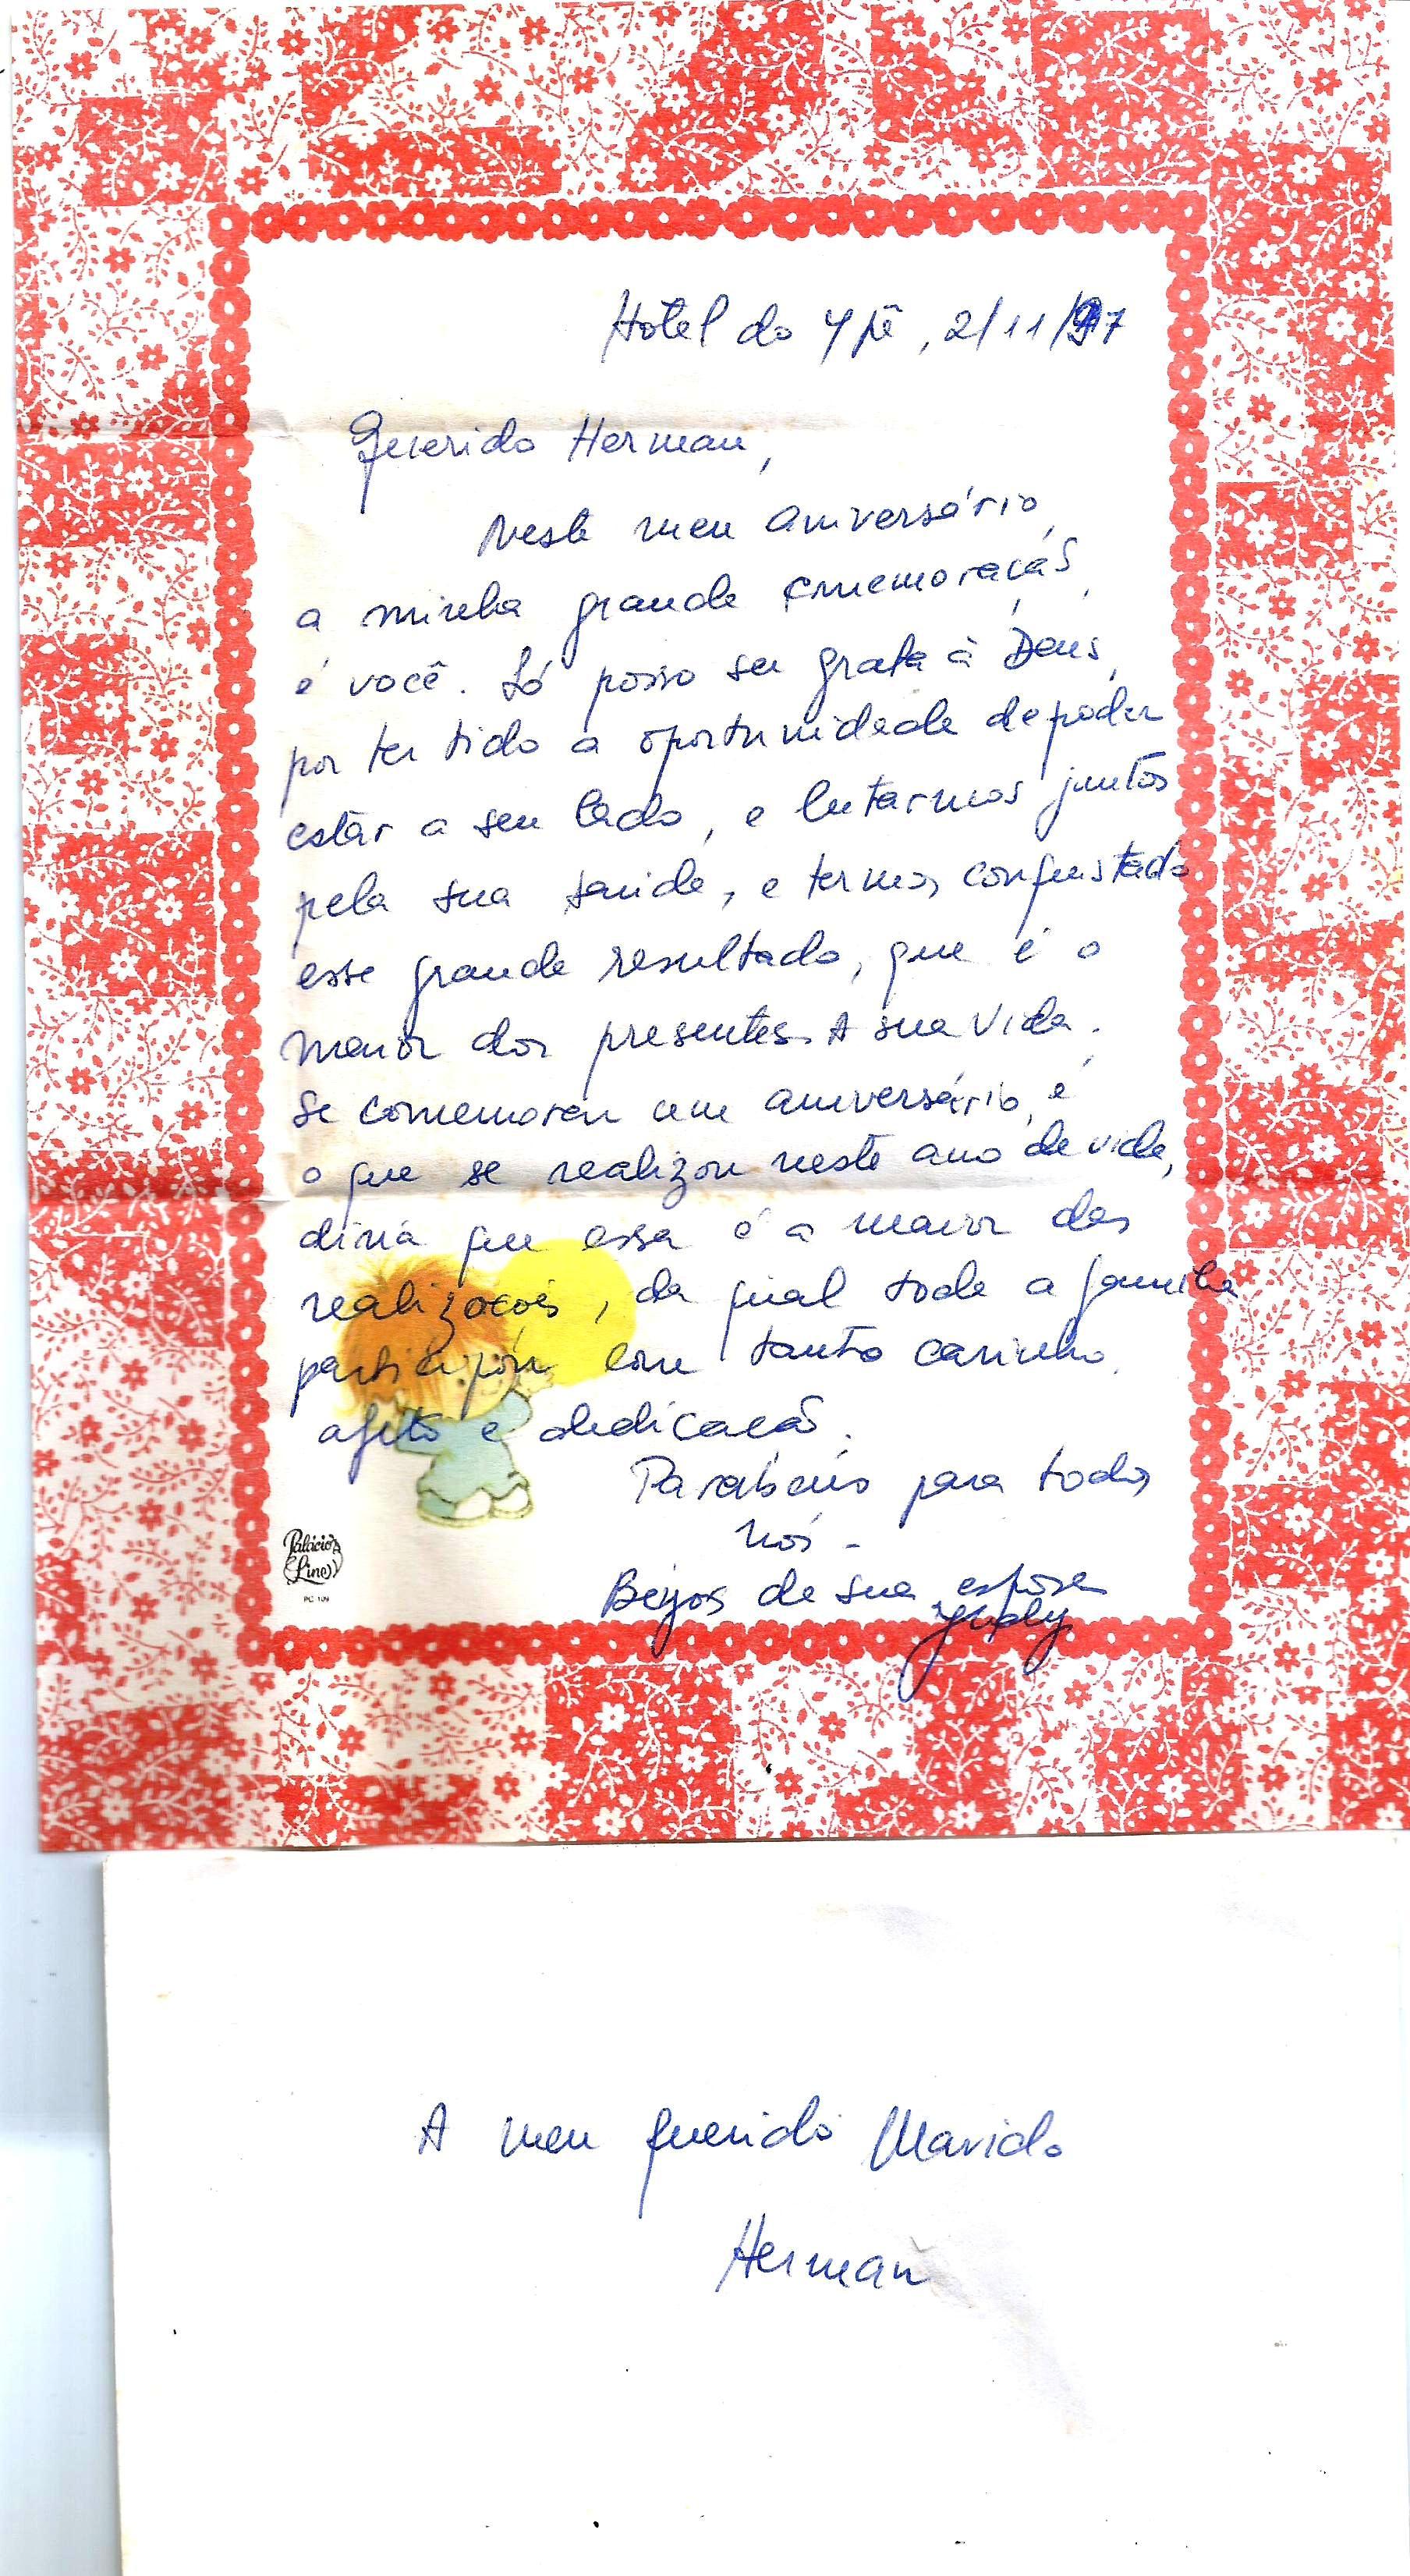 Hotel do Ypê, 2/11/97
Querido Herman,
Neste meu aniversário,
a minha grande comemoração,
é você. Só posso ser grata à Deus,
por ter tido a oportunidade de poder
estar a seu lado, e lutarmos juntos
pela sua saúde, e termos conquistado
esse grande resultado, que é o
maior dos presentes. A sua Vida.
Se comemorar um aniversário, é
o que se realizou neste ano de vida,
diria que essa é a maior das
realizações, da qual toda a família
participou com tanto carinho,
afeto e dedicação.
Parabéns para todos
nós -
Beijos de sua esposa
Palácio's
Line
PC 109
A meu querido Marido
Herman